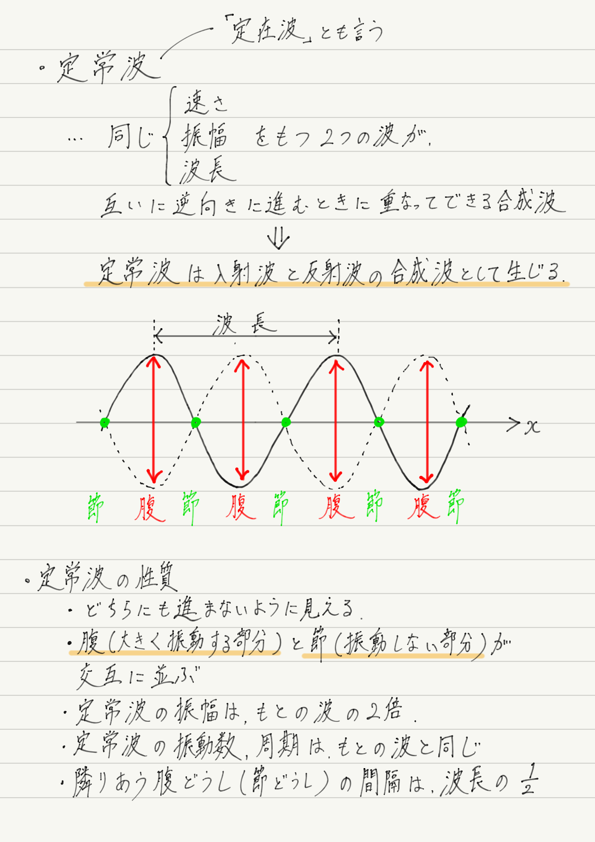 「定在波」とも言う
・定常波
速さ
… 同じ 振幅 をもつ2つの波が、
波長
互いに逆向きに進むときに重なってできる合成波
⇓
定常波は入射波と反射波の合成波として生じる.
波長
x
節 腹 節 腹 節 腹 節 腹 節
・定常波の性質
・どちらにも進まないように見える.
・腹(大きく振動する部分)と節(振動しない部分)が
交互に並ぶ
・定常波の振幅は,もとの波の2倍.
・定常波の振動数,周期は,もとの波と同じ
・隣りあう腹どうし(節どうし)の間隔は,波長の 1/2